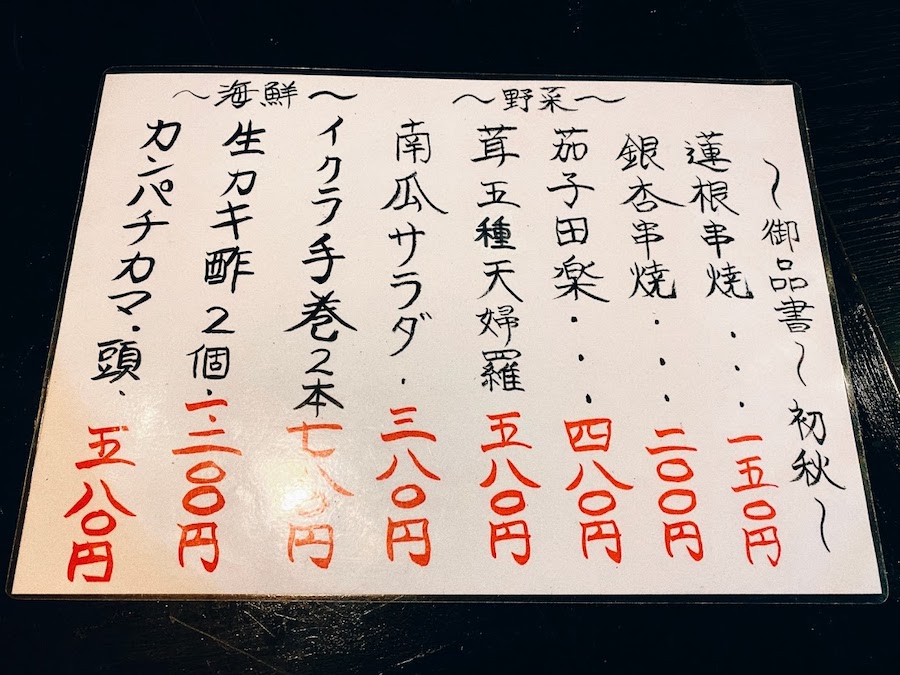 ～御品書～初秋～
～野菜～
蓮根串焼・・・一五〇円
銀杏串焼・・・二〇〇円
茄子田楽・・・四八〇円
茸五種天婦羅 五八〇円
南瓜サラダ・三八〇円
～海鮮～
イクラ手巻2本 七八〇円
生カキ酢2個・一、二〇〇円
カンパチカマ・頭・五八〇円